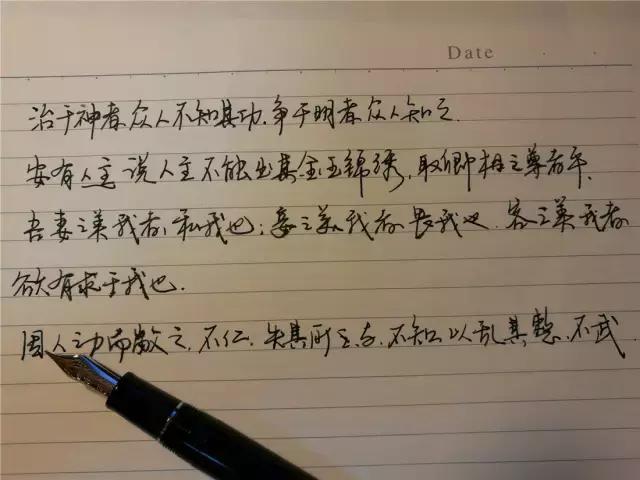 Date
治于神者众人不知其功.争于明者众人知之.
安有人主说人主不能出其金玉锦绣,取卿相之尊者乎.
吾妻之美我者,私我也;妾之美我者畏我也.客之美我者
欲有求于我也.
因人之力而敝之,不仁.失其所与,不知.以乱其整,不武.